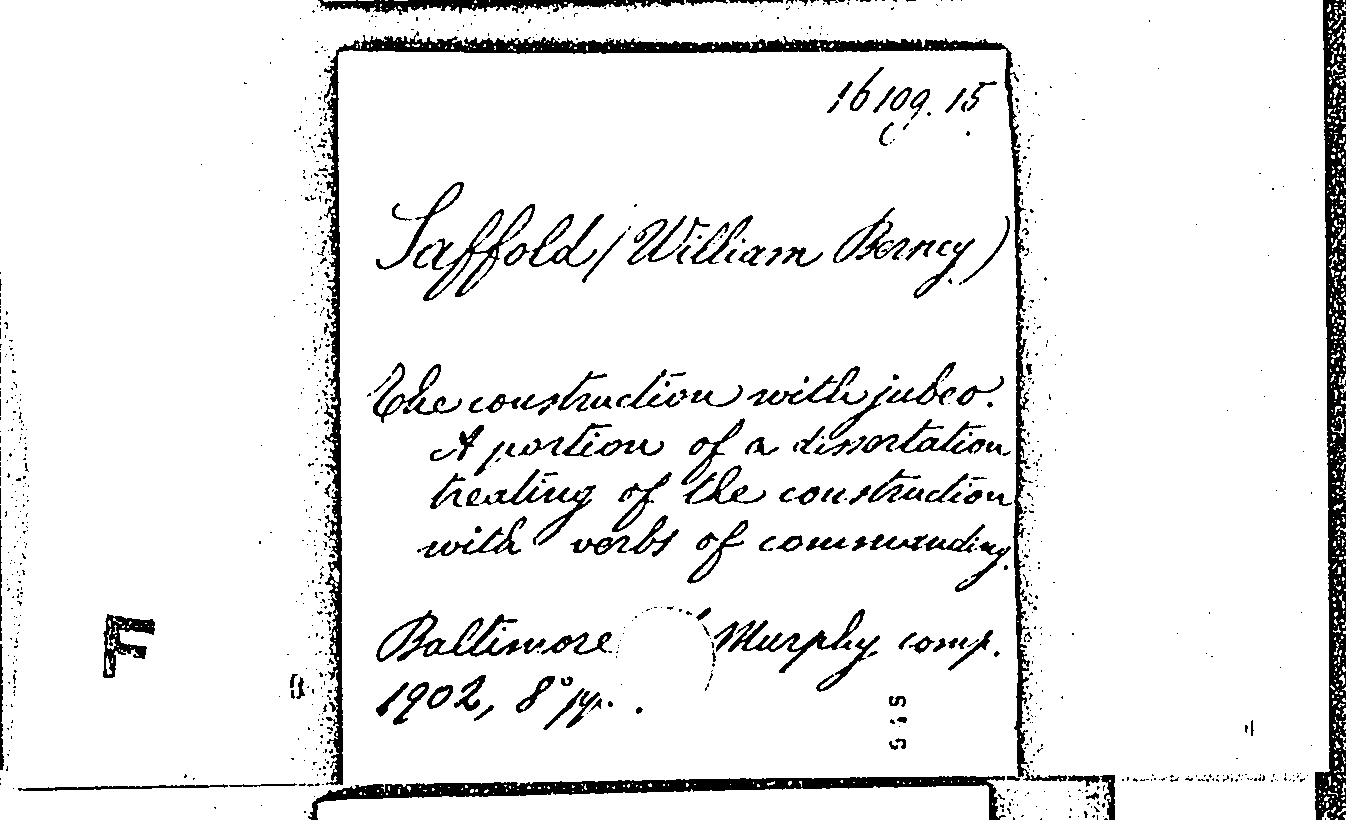 16109.15
Saffold (William Berney)
The construction with jubeo.
A portion of a dissertation
treating of the construction
with verbs of commanding.
Baltimore Murphy comp.
1902, 8° pp.
F